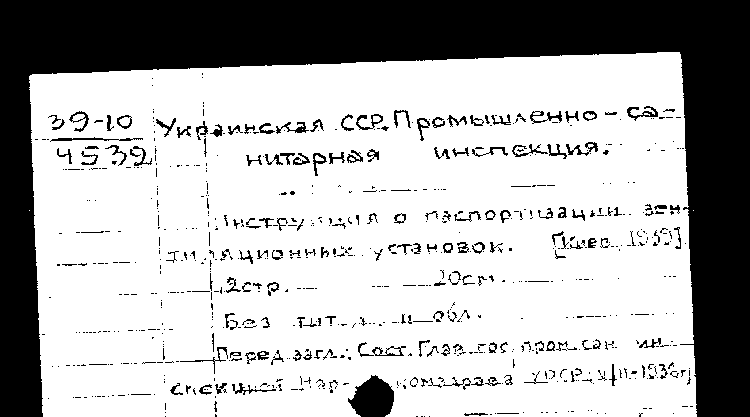 39-10 Украинская ССР. Промышленно-са-
4539 нитарная инспекция.
Инструкция о паспортизации вен-
тиляционных установок. [Киев, 1939]
12стр. 20см.
Без тит. л. и обл.
Перед загл.: Сост. Глав. гос. пром. сан. ин-
спекцией Нар- комздрава УРСР